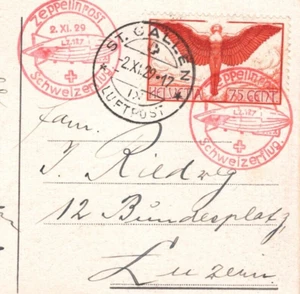 Zeppelinpost
2. XI. 29
LZ.127
Schweizerflug.
ST. GALLEN
2
-2.XI.29-12
LUFTPOST
HELVETIA
75 CENT.
Zeppelinpost
LZ.127
Schweizerflug.
Fam.
J. Riedweg
12 Bundesplatz,
Luzern.